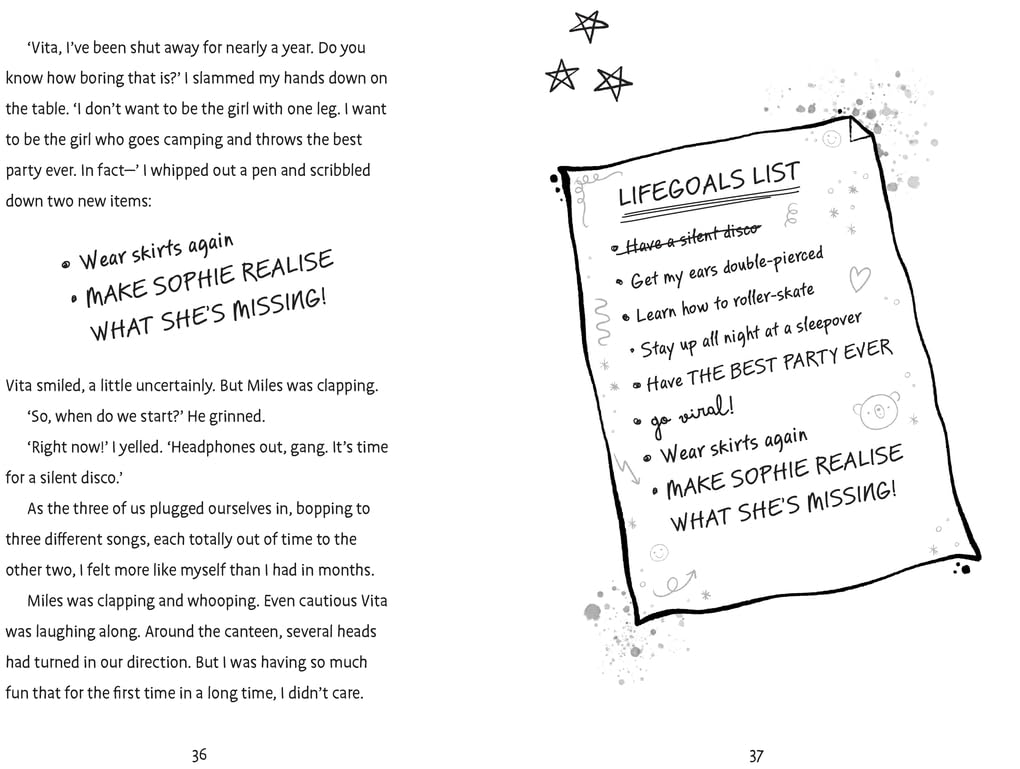 ‘Vita, I’ve been shut away for nearly a year. Do you
know how boring that is?’ I slammed my hands down on
the table. ‘I don’t want to be the girl with one leg. I want
to be the girl who goes camping and throws the best
party ever. In fact—’ I whipped out a pen and scribbled
down two new items:
• Wear skirts again
• MAKE SOPHIE REALISE
WHAT SHE’S MISSING!
Vita smiled, a little uncertainly. But Miles was clapping.
‘So, when do we start?’ He grinned.
‘Right now!’ I yelled. ‘Headphones out, gang. It’s time
for a silent disco.’
As the three of us plugged ourselves in, bopping to
three different songs, each totally out of time to the
other two, I felt more like myself than I had in months.
Miles was clapping and whooping. Even cautious Vita
was laughing along. Around the canteen, several heads
had turned in our direction. But I was having so much
fun that for the first time in a long time, I didn’t care.
36
LIFEGOALS LIST
• Have a silent disco
• Get my ears double-pierced
• Learn how to roller-skate
• Stay up all night at a sleepover
• Have THE BEST PARTY EVER
• go viral!
• Wear skirts again
• MAKE SOPHIE REALISE
WHAT SHE’S MISSING!
37